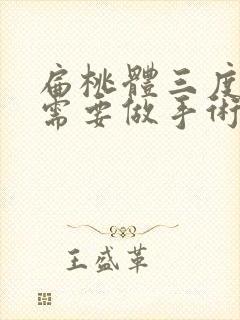 扁桃體三度
需要做手術
王盛革